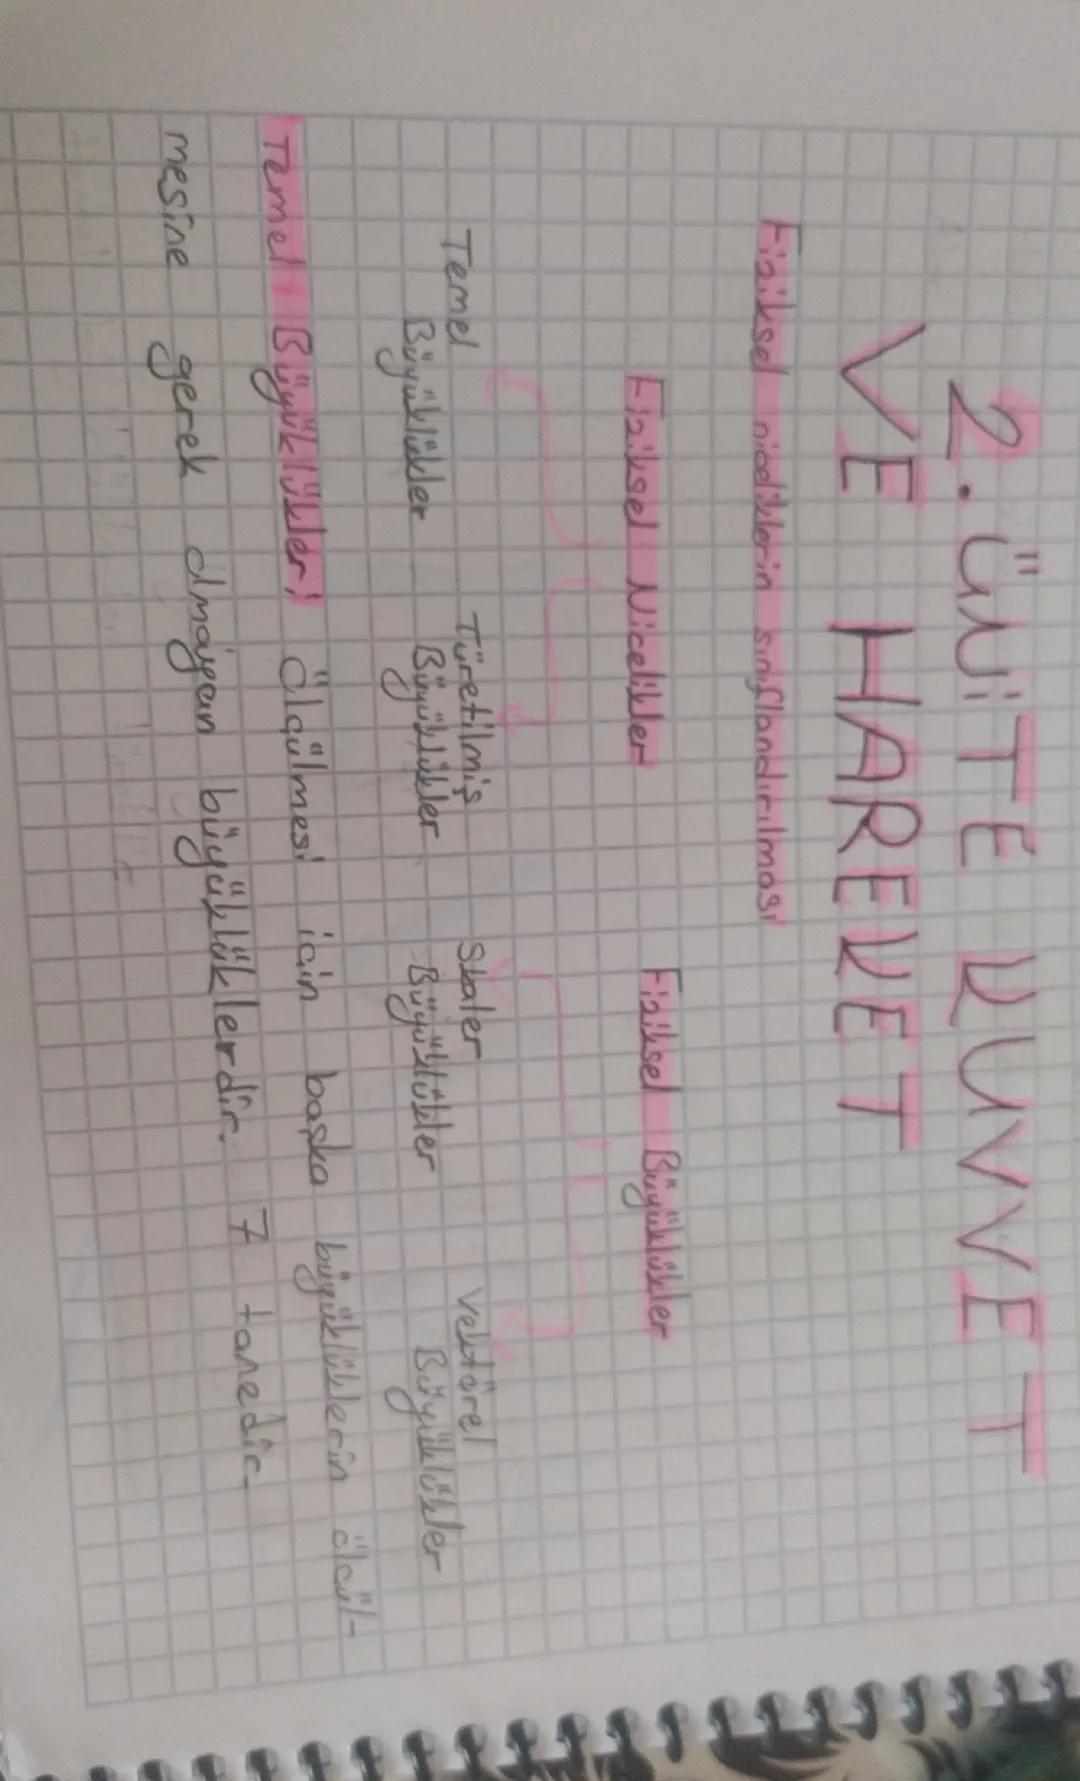 2. ÜNİTE KUVVET
VE HAREKET
Fiziksel niceliklerin sınıflandırılması
Fiziksel Nicelikler
Fiziksel Büyüklükler
Temel
Büyüklükler
Türetilmiş
Büyüklükler
Skaler
Büyüklükler
Vektörel
Büyüklükler
Temel Büyüklükler: Ölçülmesi için başka büyüklüklerin ölçül-
mesine gerek olmayan büyüklüklerdir. 7 tanedir.